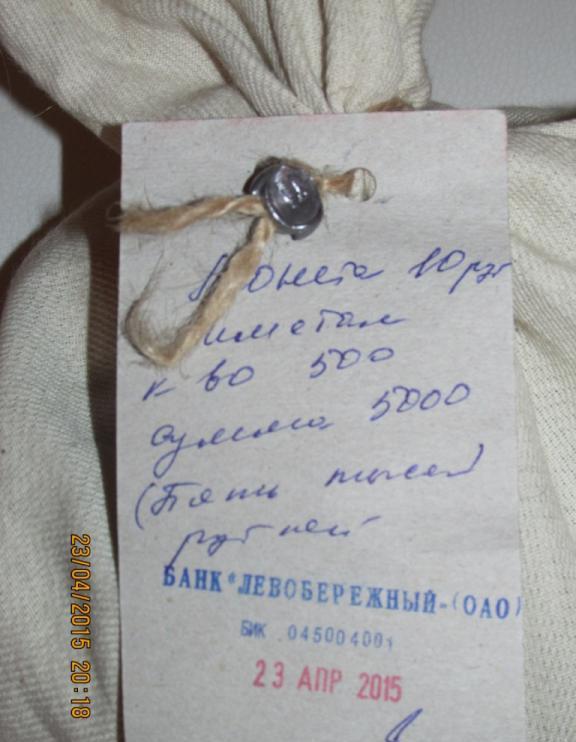 Монета 10 руб
иметал
к-во 500
сумма 5000
(Пять тысяч)
рублей
БАНК "ЛЕВОБЕРЕЖНЫЙ" (ОАО)
БИК 045004001
23 АПР 2015
23/04/2015 20:18